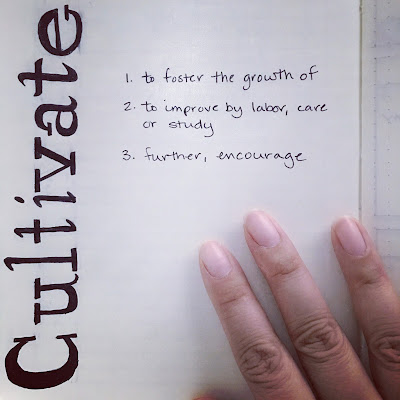 Cultivate
1. to foster the growth of
2. to improve by labor, care
or study
3. further, encourage